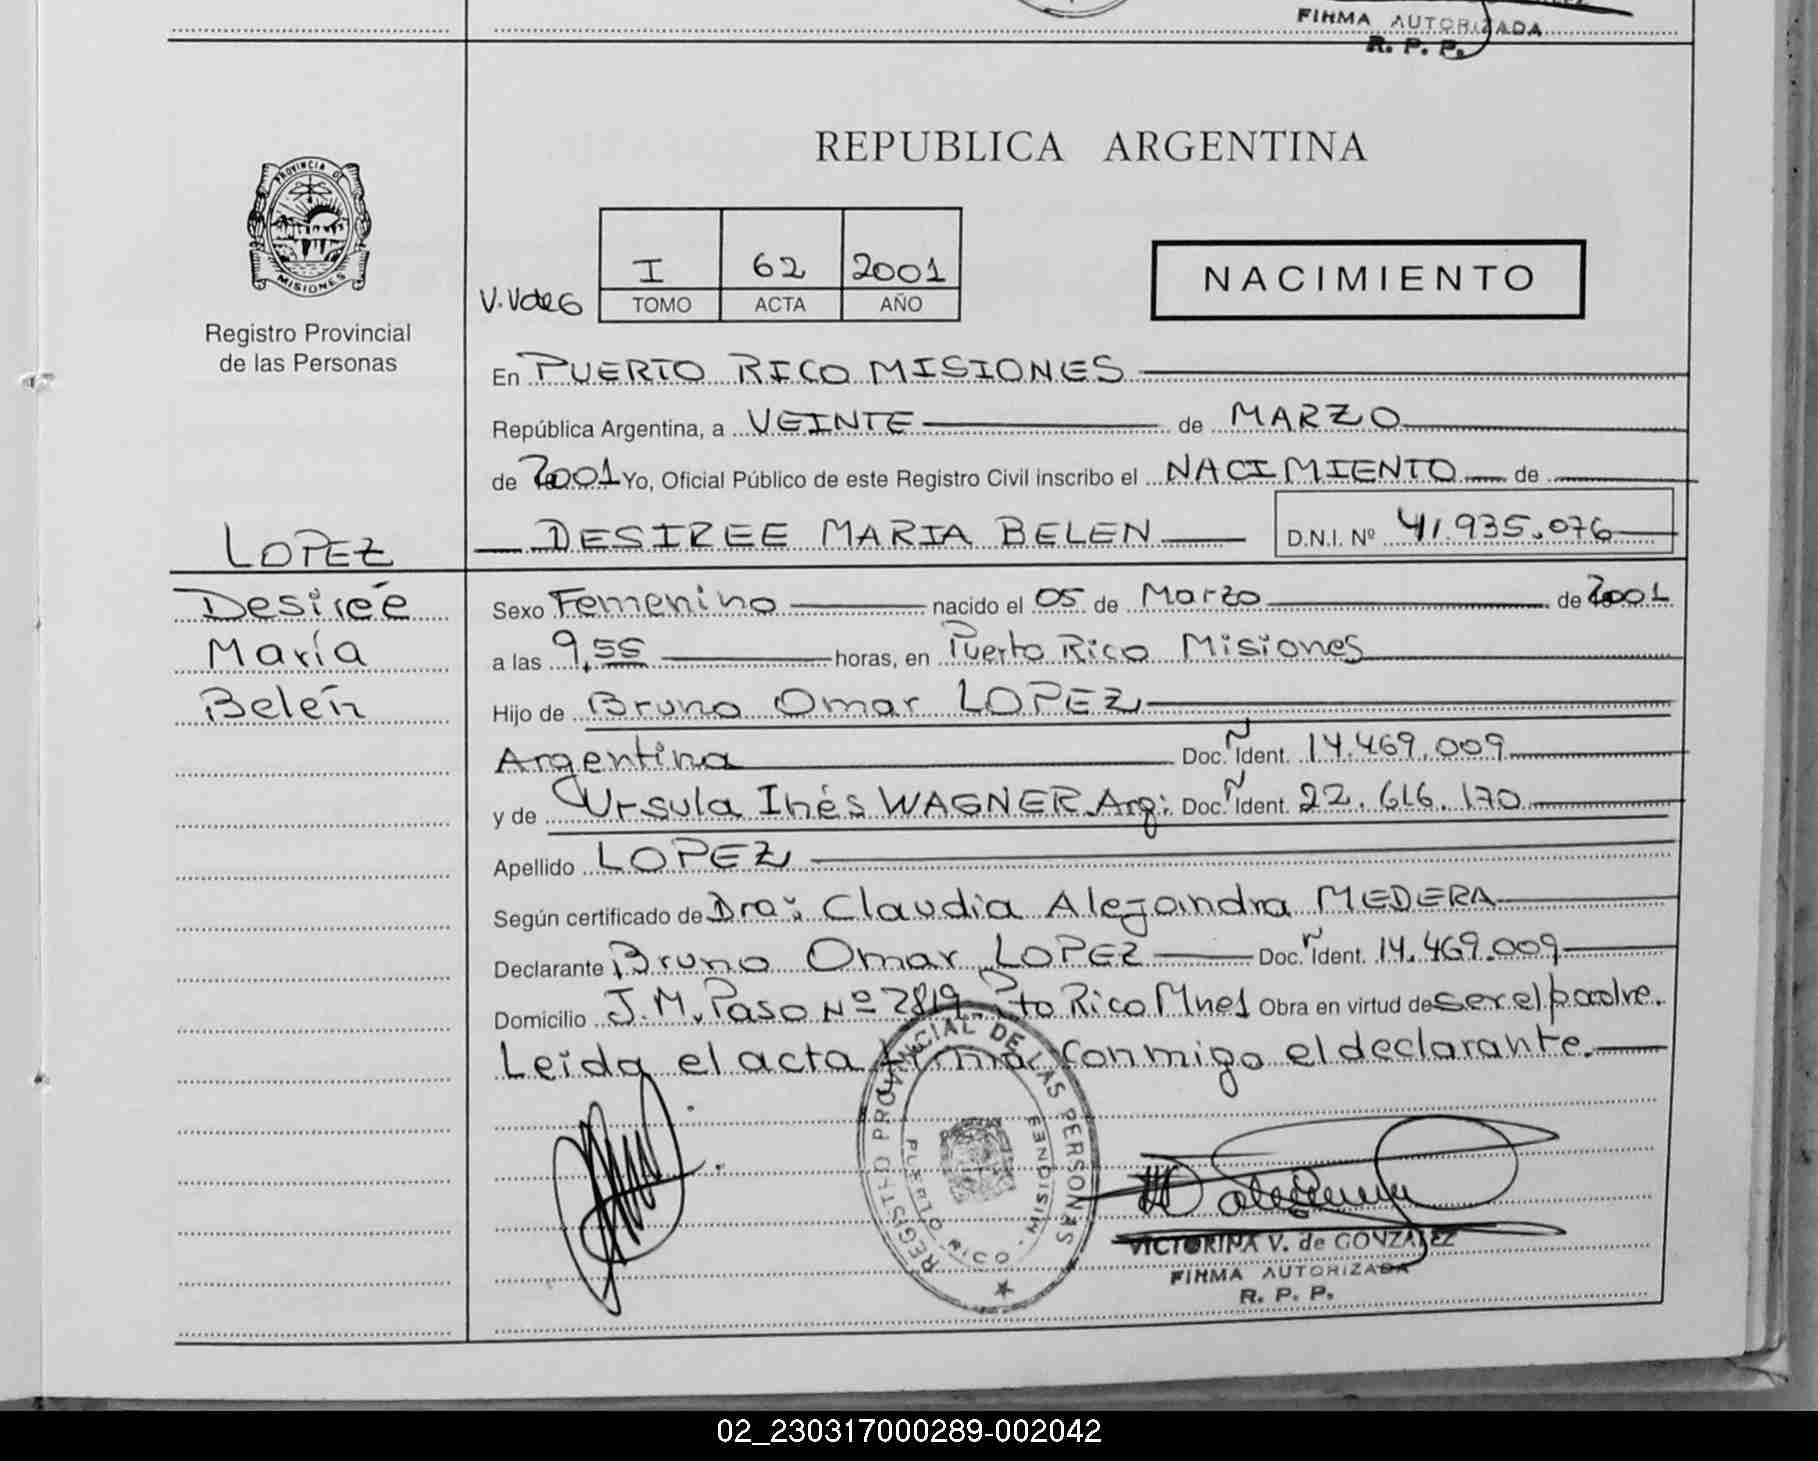 FIRMA AUTORIZADA
R. P. P.
PROVINCIA DE
MISIONES
Registro Provincial
de las Personas
REPUBLICA ARGENTINA
I 62 2001
V.VdeG TOMO ACTA AÑO
NACIMIENTO
En PUERTO RICO MISIONES
República Argentina, a VEINTE de MARZO
de 2001 Yo, Oficial Público de este Registro Civil inscribo el NACIMIENTO de
DESIREE MARIA BELEN D.N.I. Nº 41.935.076
LOPEZ
Desireé
María
Belén
Sexo Femenino nacido el 05 de Marzo de 2001
a las 9,55 horas, en Puerto Rico Misiones
Hijo de Bruno Omar LOPEZ
Argentina Doc. Ident. 14.469.009
y de Ursula Inés WAGNER Arg: Doc. Ident. 22.616.170
Apellido LOPEZ
Según certificado de Dra: Claudia Alejandra MEDERA
Declarante Bruno Omar LOPEZ Doc. Ident. 14.469.009
Domicilio J.M. Paso Nº 2819 Pto Rico Mnes Obra en virtud de ser el padre.
Leida el acta firma conmigo el declarante.
REGISTRO PROVINCIAL DE LAS PERSONAS
PUERTO RICO - MISIONES
VICTORINA V. de GONZALEZ
FIRMA AUTORIZADA
R. P. P.
02_230317000289-002042